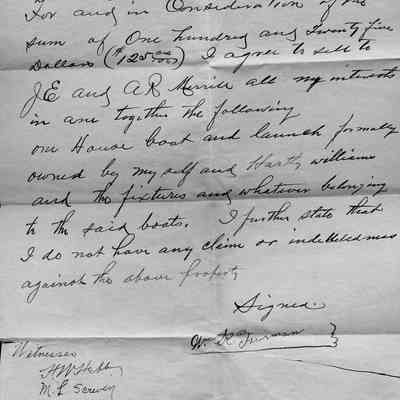 For and in Consideration of the
sum of One hundred and Twenty five
Dollars ($125.00/100) I agree to sell to
J.E and A.R Merrill all my interests
in are together the following
one House boat and launch formally
owned by my self and Harth williams
and the fixtures and whatever belonging
to the said boats. I further state that
I do not have any claim or indebtedness
against the above property
Signed.
W. R. Furman
Witnesses
H W Hebb
M. L